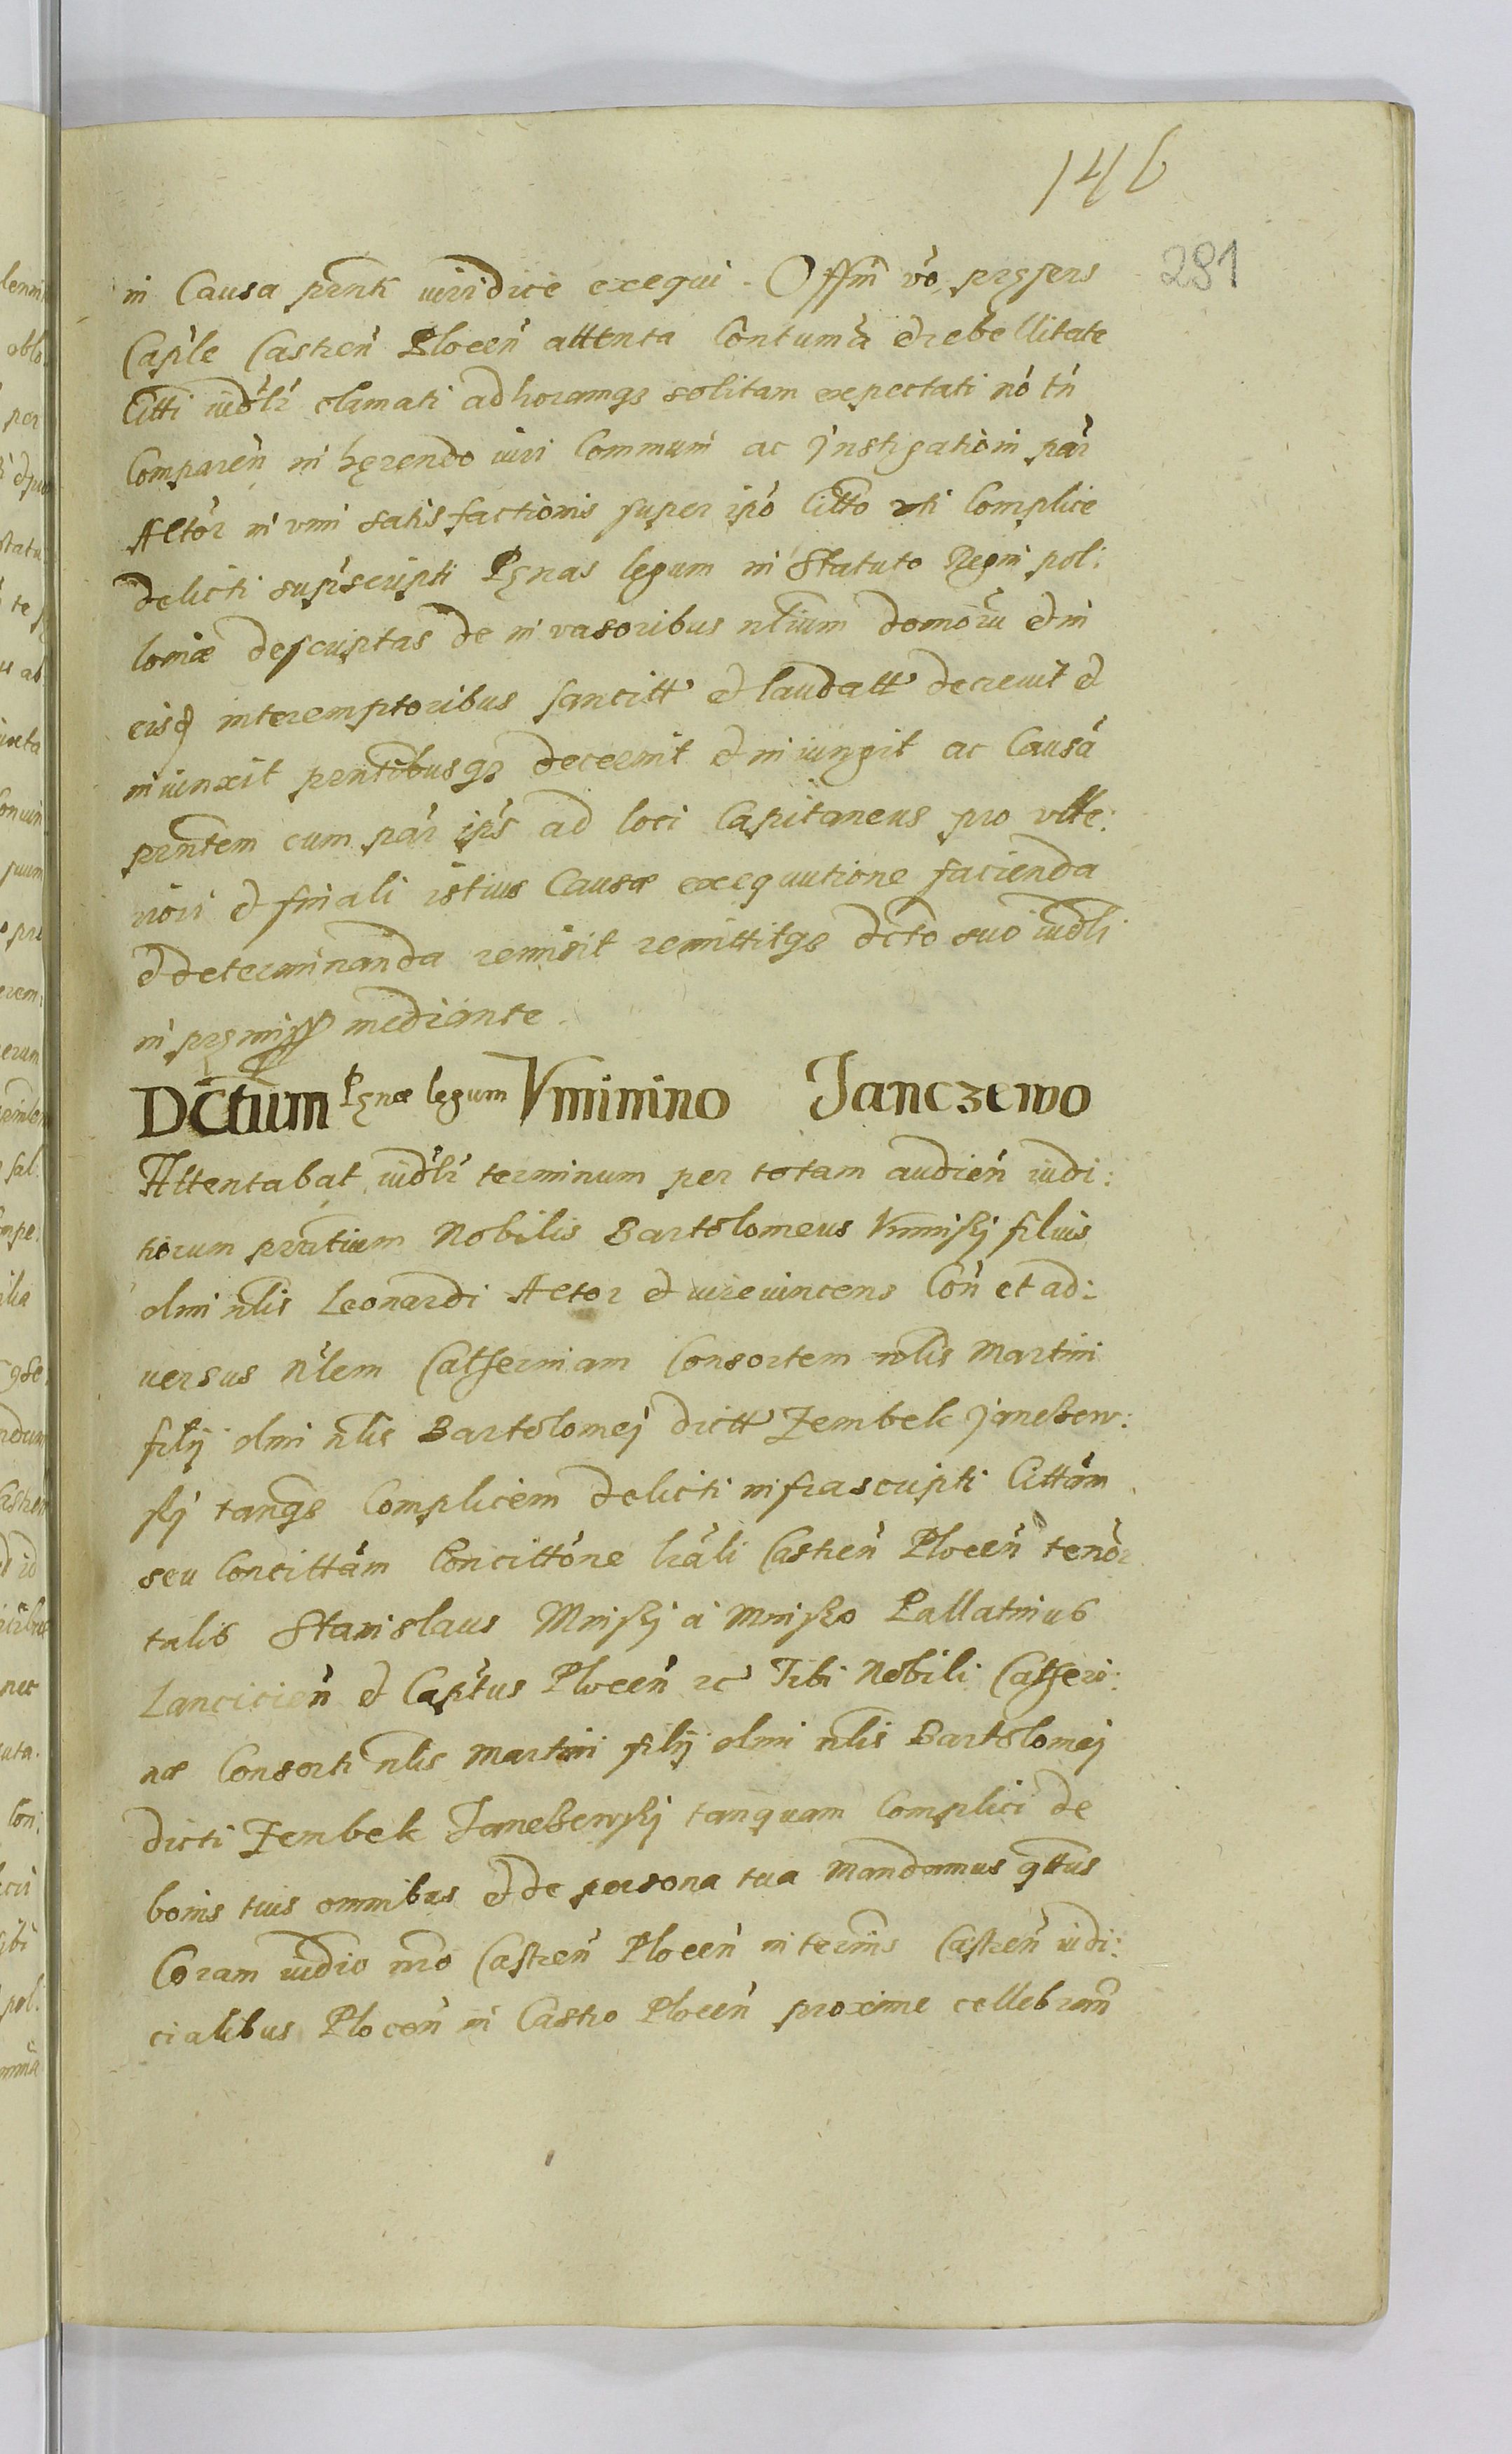 146
281
in Causa prnti iuridice exequi. Offm vo pręsens
Capłe Castren Plocen attenta Contuma et rebellitate
Citti iudłr clamati ad horamq solitam expectati no tn
Comparen in hęrendo iuri Communi ac Instigationi par
Actor in vim satisfactionis super ipo Citto uti Complice
delicti suprscripti Pęnas legum in Statuto Regni pol:
loniæ descriptas de invasoribus nłium domoru et in
eisd interemptoribus sancitt et laudatt decreuit et
iniunxit prntibusq decernit et iniungit ac Causa
prntem cum par ips ad loci Capitaneus pro vlte:
riori et finali istius Causæ exequutione facienda
et determinanda remisit remittitq dcto suo iudłi
in pręmiss mediante.
Dctum Pęnæ legum Vminino Janczewo
Attentabat iudłr terminum per totam audien iudi:
tiorum prntium Nobilis Bartolomeus Vminskj filius
olmi nłis Leonardi Actor et iurevincens Con et ad:
uersus Nłem Catherinam Consortem nłis Martini
filij olmi nłis Bartolomej dictt Zembek Janczew:
skj tanq Complicem delicti infrascripti Cittam
seu Concittam Concittone łrali Castren Plocen tenor
talis Stanislaus Minskj a Minsko Pallatinus
Lancicien et Captus Plocen rc Tibi Nobili Catheri:
næ Consorti nłis Martini filij olmi nłis Bartolomej
dicti Zembek Janczewskj tanquam Complici de
bonis tuis omnibus et de persona tua Mandamus qttus
Coram iudio nro Castren Plocen in terinis Castren iudi:
cialibus Plocen in Castro Plocen proxime cellebran